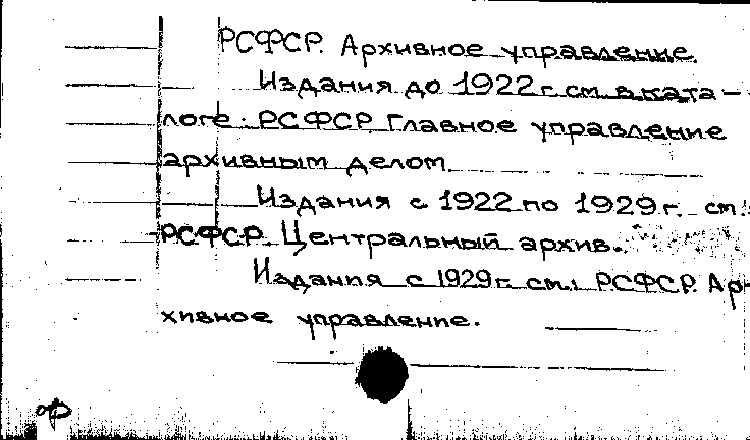 РСФСР. Архивное управление.
Издания до 1922 г. см. в ката-
логе: РСФСР. Главное управление
архивным делом.
Издания с 1922 по 1929 г. см.:
РСФСР. Центральный архив.
Издания с 1929 г. см.: РСФСР. Ар-
хивное управление.